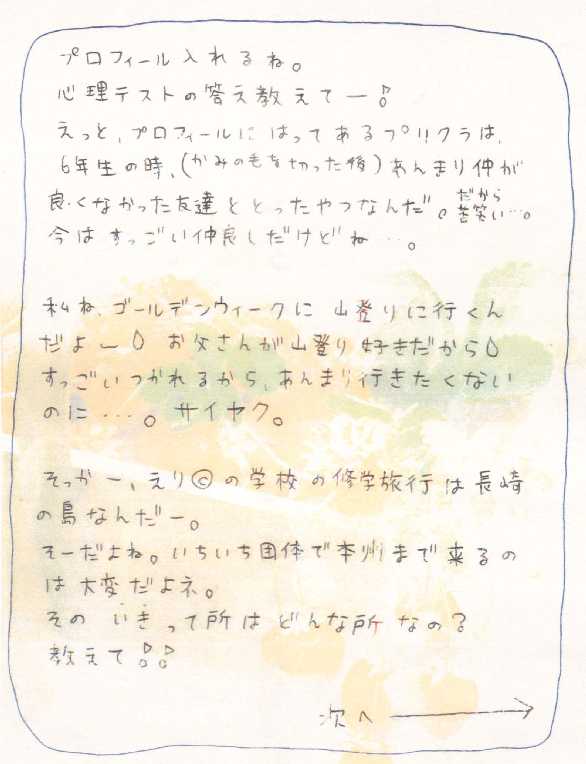 プロフィール入れるね。
心理テストの答え教えてー!
えっと、プロフィールにはってあるプリクラは、
6年生の時、(かみの毛を切った後)あんまり仲が
良くなかった友達ととったやつなんだ。だから苦笑い…。
今はすっごい仲良しだけどね…。
私ね、ゴールデンウィークに山登りに行くん
だよー お父さんが山登り好きだから
すっごいつかれるから、あんまり行きたくない
のに…。サイヤク。
そっかー、えり©の学校の修学旅行は長崎
の島なんだー。
そーだよね。いちいち団体で本州まで来るの
は大変だよネ。
その いきって所はどんな所なの?
教えて!!
次へ →